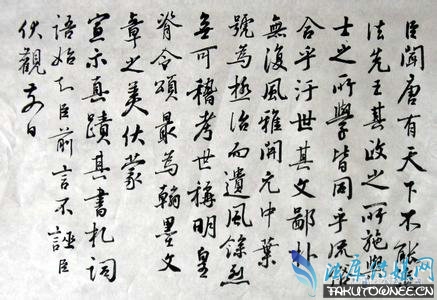 臣聞唐有天下不能
法先王其政之所施與
士之所學皆同乎流俗
合乎汙世其文鄙朴
無復風雅開元中葉
號為極治而遺風餘烈
無可稽考世稱明皇
脊令頌最為翰墨文
章之美伏蒙
宣示真蹟其書札詞
語始知臣前言不誣臣
伏觀前日
TAKUTOWNEE.CN